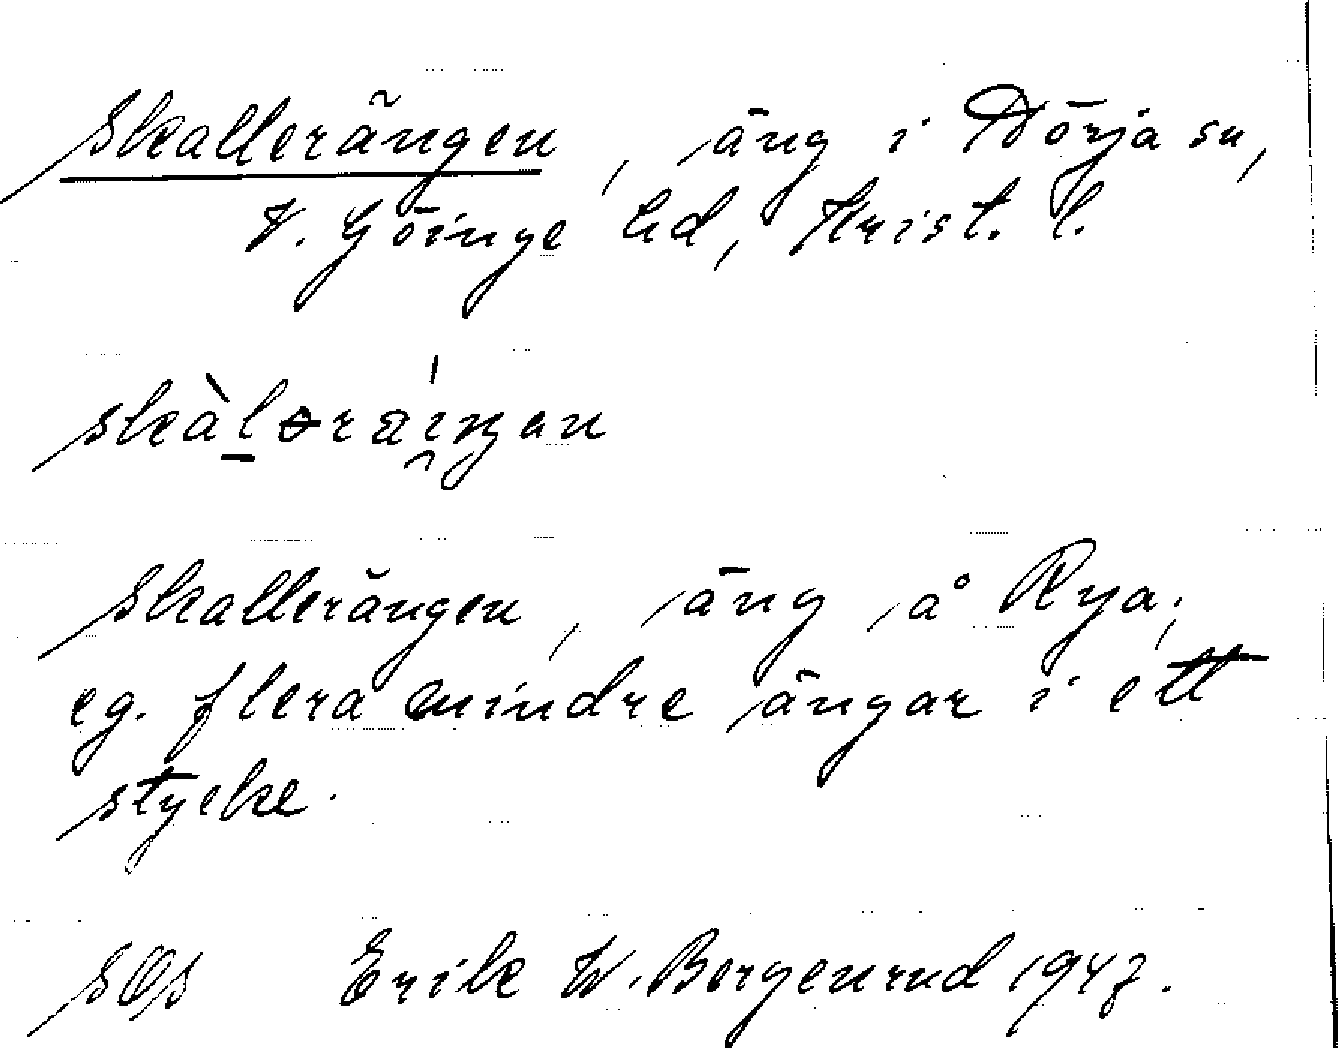 Skallerängen, äng i Dörja sn,
V. Göinge hd, Krist. l.
Skallerängen, äng å Rya,
eg. flera mindre ängar i ett
stycke.
SOS Erik W. Bergenrud 1947.